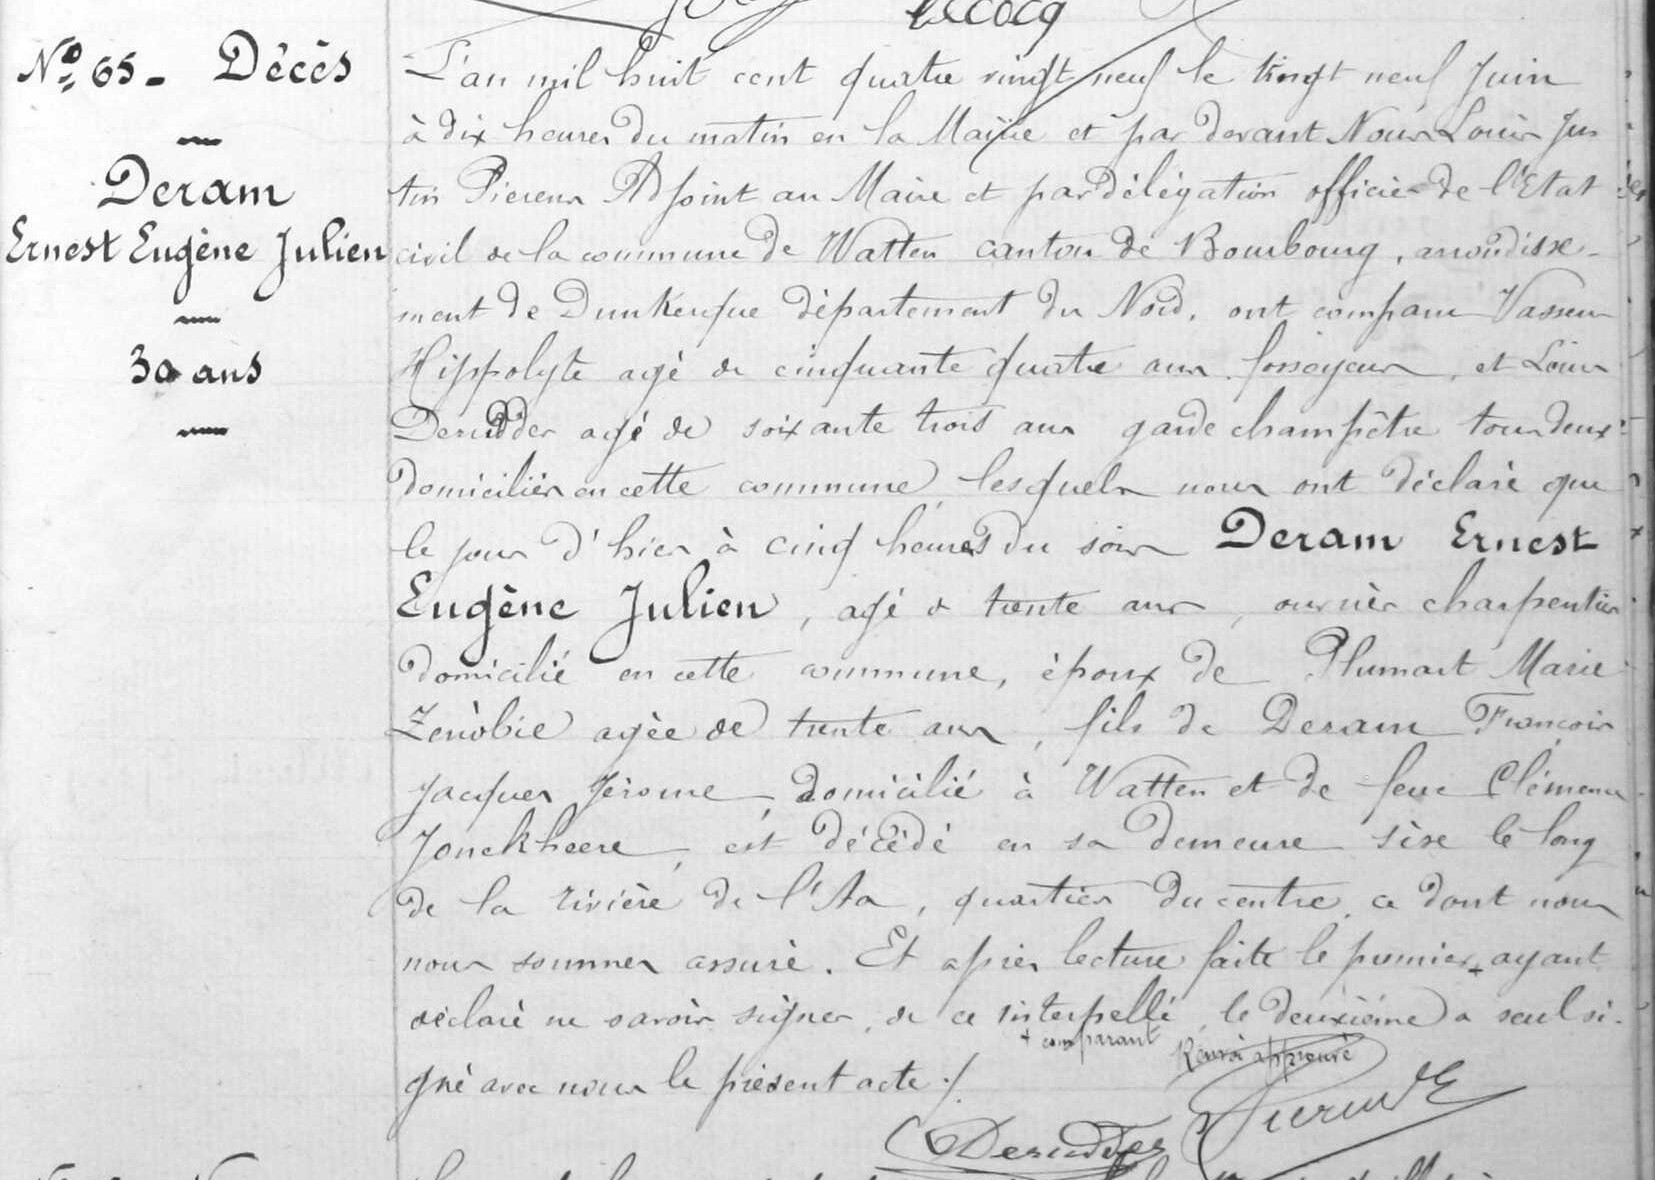 Lecocq
Nº 65 - Décès
Deram
Ernest Eugène Julien
30 ans
L'an mil huit cent quatre vingt neuf le vingt neuf Juin
à dix heures du matin en la Mairie et par devant Nous Louis Jus
tin Piereus Adjoint au Maire et par délégation officier de l'Etat
civil de la commune de Watten canton de Bourbourg, arrondisse-
ment de Dunkerque département du Nord, ont comparu Vasseur
Hippolyte agé de cinquante quatre ans fossoyeur, et Louis
Derudder agé de soixante trois ans garde champêtre tous deux
domiciliés en cette commune, lesquels nous ont déclaré que
le jour d'hier à cinq heures du soir Deram Ernest
Eugène Julien, agé de trente ans, ouvrièr charpentier
domicilié en cette commune, époux de Plumart Marie
Zénobie agée de trente ans, fils de Deram François
Jacques Jérome, domicilié à Watten et de feue Clémence
Jonckheere, est décédé en sa demeure sise le long
de la rivière de l'Aa, quartier du centre, ce dont nous
nous sommes assuré. Et après lecture faite le premier + ayant
déclaré ne savoir signer, de ce interpellé, le deuxième a seul si-
+ comparant Renvoi approuvé
gné avec nous le présent acte ./.
Derudder